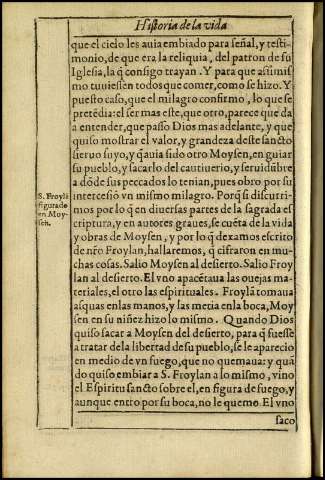 Historia de la vida
que el cielo les auia embiado para señal, y testi-
monio, de que era la reliquia, del patron de su
Iglesia, la q̃ consigo trayan. Y para que assimis
mo tuuiessen todos que comer, como se hizo. Y
puesto caso, que el milagro confirmo, lo que se
pretẽdia: el ser mas este, que otro, parece que da
a entender, que passo Dios mas adelante, y que
quiso mostrar el valor, y grandeza deste sancto
sieruo suyo, y q̃ auia sido otro Moysen, en guiar
su pueblo, y sacarlo del cautiuerio, y seruidũbre
a dõde sus peccados lo tenian, pues obro por su
intercesiõ vn mismo milagro. Porq̃ si discurri-
mos por lo q̃ en diuersas partes de la sagrada es
criptura, y en autores graues, se cuẽta de la vida
y obras de Moysen, y por lo q̃ dexamos escrito
de nr̃o Froylan, hallaremos, q̃ cifraron en mu-
chas cosas. Salio Moysen al desierto. Salio Froy
lan al desierto. El vno apacẽtaua las ouejas ma-
teriales, el otro las espirituales. Froylã tomaua
asquas en las manos, y las metia en la boca, Moy
sen en su niñez hizo lo mismo. Quando Dios
quiso sacar a Moysen del desierto, para q̃ fuesse
a tratar de la libertad de su pueblo, se le aparecio
en medio de vn fuego, que no quemaua: y quã
do quiso embiar a S. Froylan a lo mismo, vino
el Espiritu sancto sobre el, en figura de fuego, y
aunque entro por su boca, no le quemo. El vno
saco
S. Froylã
figurado
en Moy-
sen.